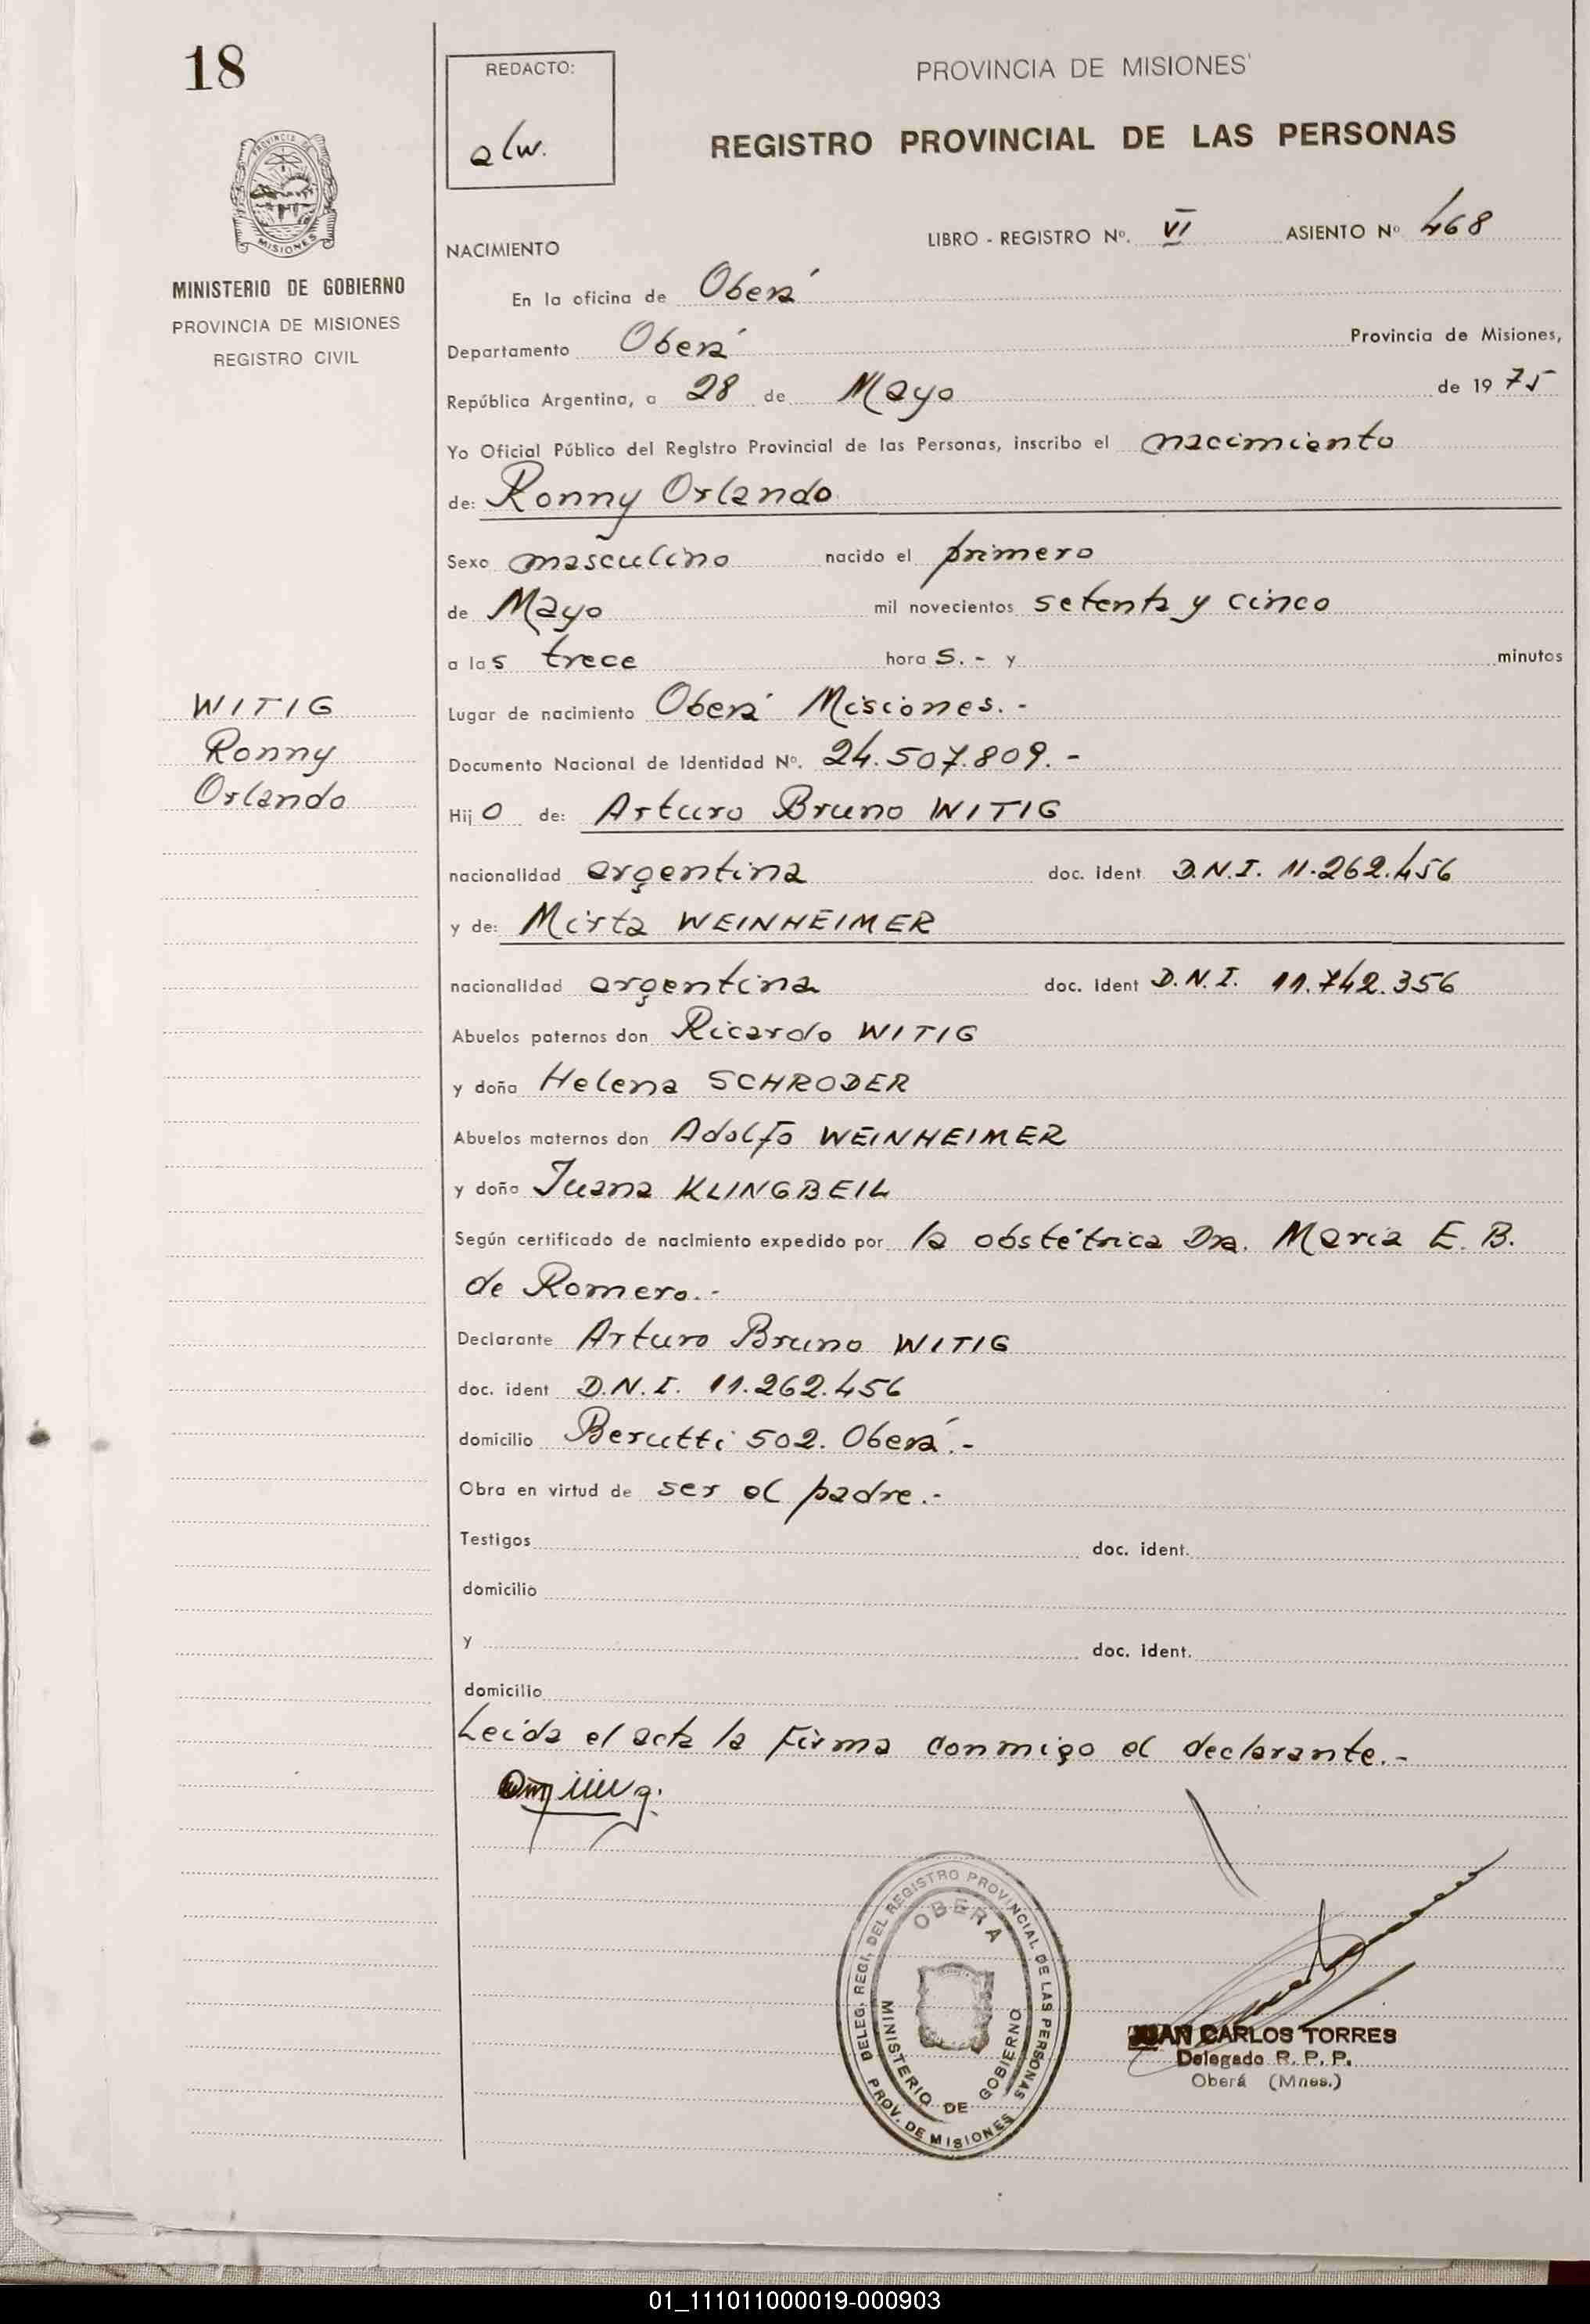 18
REDACTO:
alw.
PROVINCIA DE MISIONES
REGISTRO PROVINCIAL DE LAS PERSONAS
PROVINCIA DE
MISIONES
MINISTERIO DE GOBIERNO
PROVINCIA DE MISIONES
REGISTRO CIVIL
NACIMIENTO
LIBRO - REGISTRO Nº. VI ASIENTO Nº 468
En la oficina de Oberá
Departamento Oberá Provincia de Misiones,
República Argentina, a 28 de Mayo de 1975
Yo Oficial Público del Registro Provincial de las Personas, inscribo el nacimiento
de: Ronny Orlando
Sexo masculino nacido el primero
de Mayo mil novecientos setenta y cinco
a las trece horas.- y minutos
WITIG
Ronny
Orlando
Lugar de nacimiento Oberá Misiones.-
Documento Nacional de Identidad Nº. 24.507.809.-
Hijo de: Arturo Bruno WITIG
nacionalidad argentina doc. ident D.N.I. 11.262.456
y de: Mirta WEINHEIMER
nacionalidad argentina doc. ident D.N.I. 11.742.356
Abuelos paternos don Ricardo WITIG
y doña Helena SCHRODER
Abuelos maternos don Adolfo WEINHEIMER
y doña Juana KLINGBEIL
Según certificado de nacimiento expedido por la obstétrica Dra. Maria E. B.
de Romero.-
Declarante Arturo Bruno WITIG
doc. ident D.N.I. 11.262.456
domicilio Berutti 502. Oberá.-
Obra en virtud de ser el padre.-
Testigos doc. ident.
domicilio
y doc. ident.
domicilio
Leida el acta la Firma conmigo el declarante.-
DELEG. REGI. DEL REGISTRO PROVINCIAL DE LAS PERSONAS
OBERA
MINISTERIO DE GOBIERNO
PROV. DE MISIONES
JUAN CARLOS TORRES
Delegado R. P. P.
Oberá (Mnes.)
01_111011000019-000903